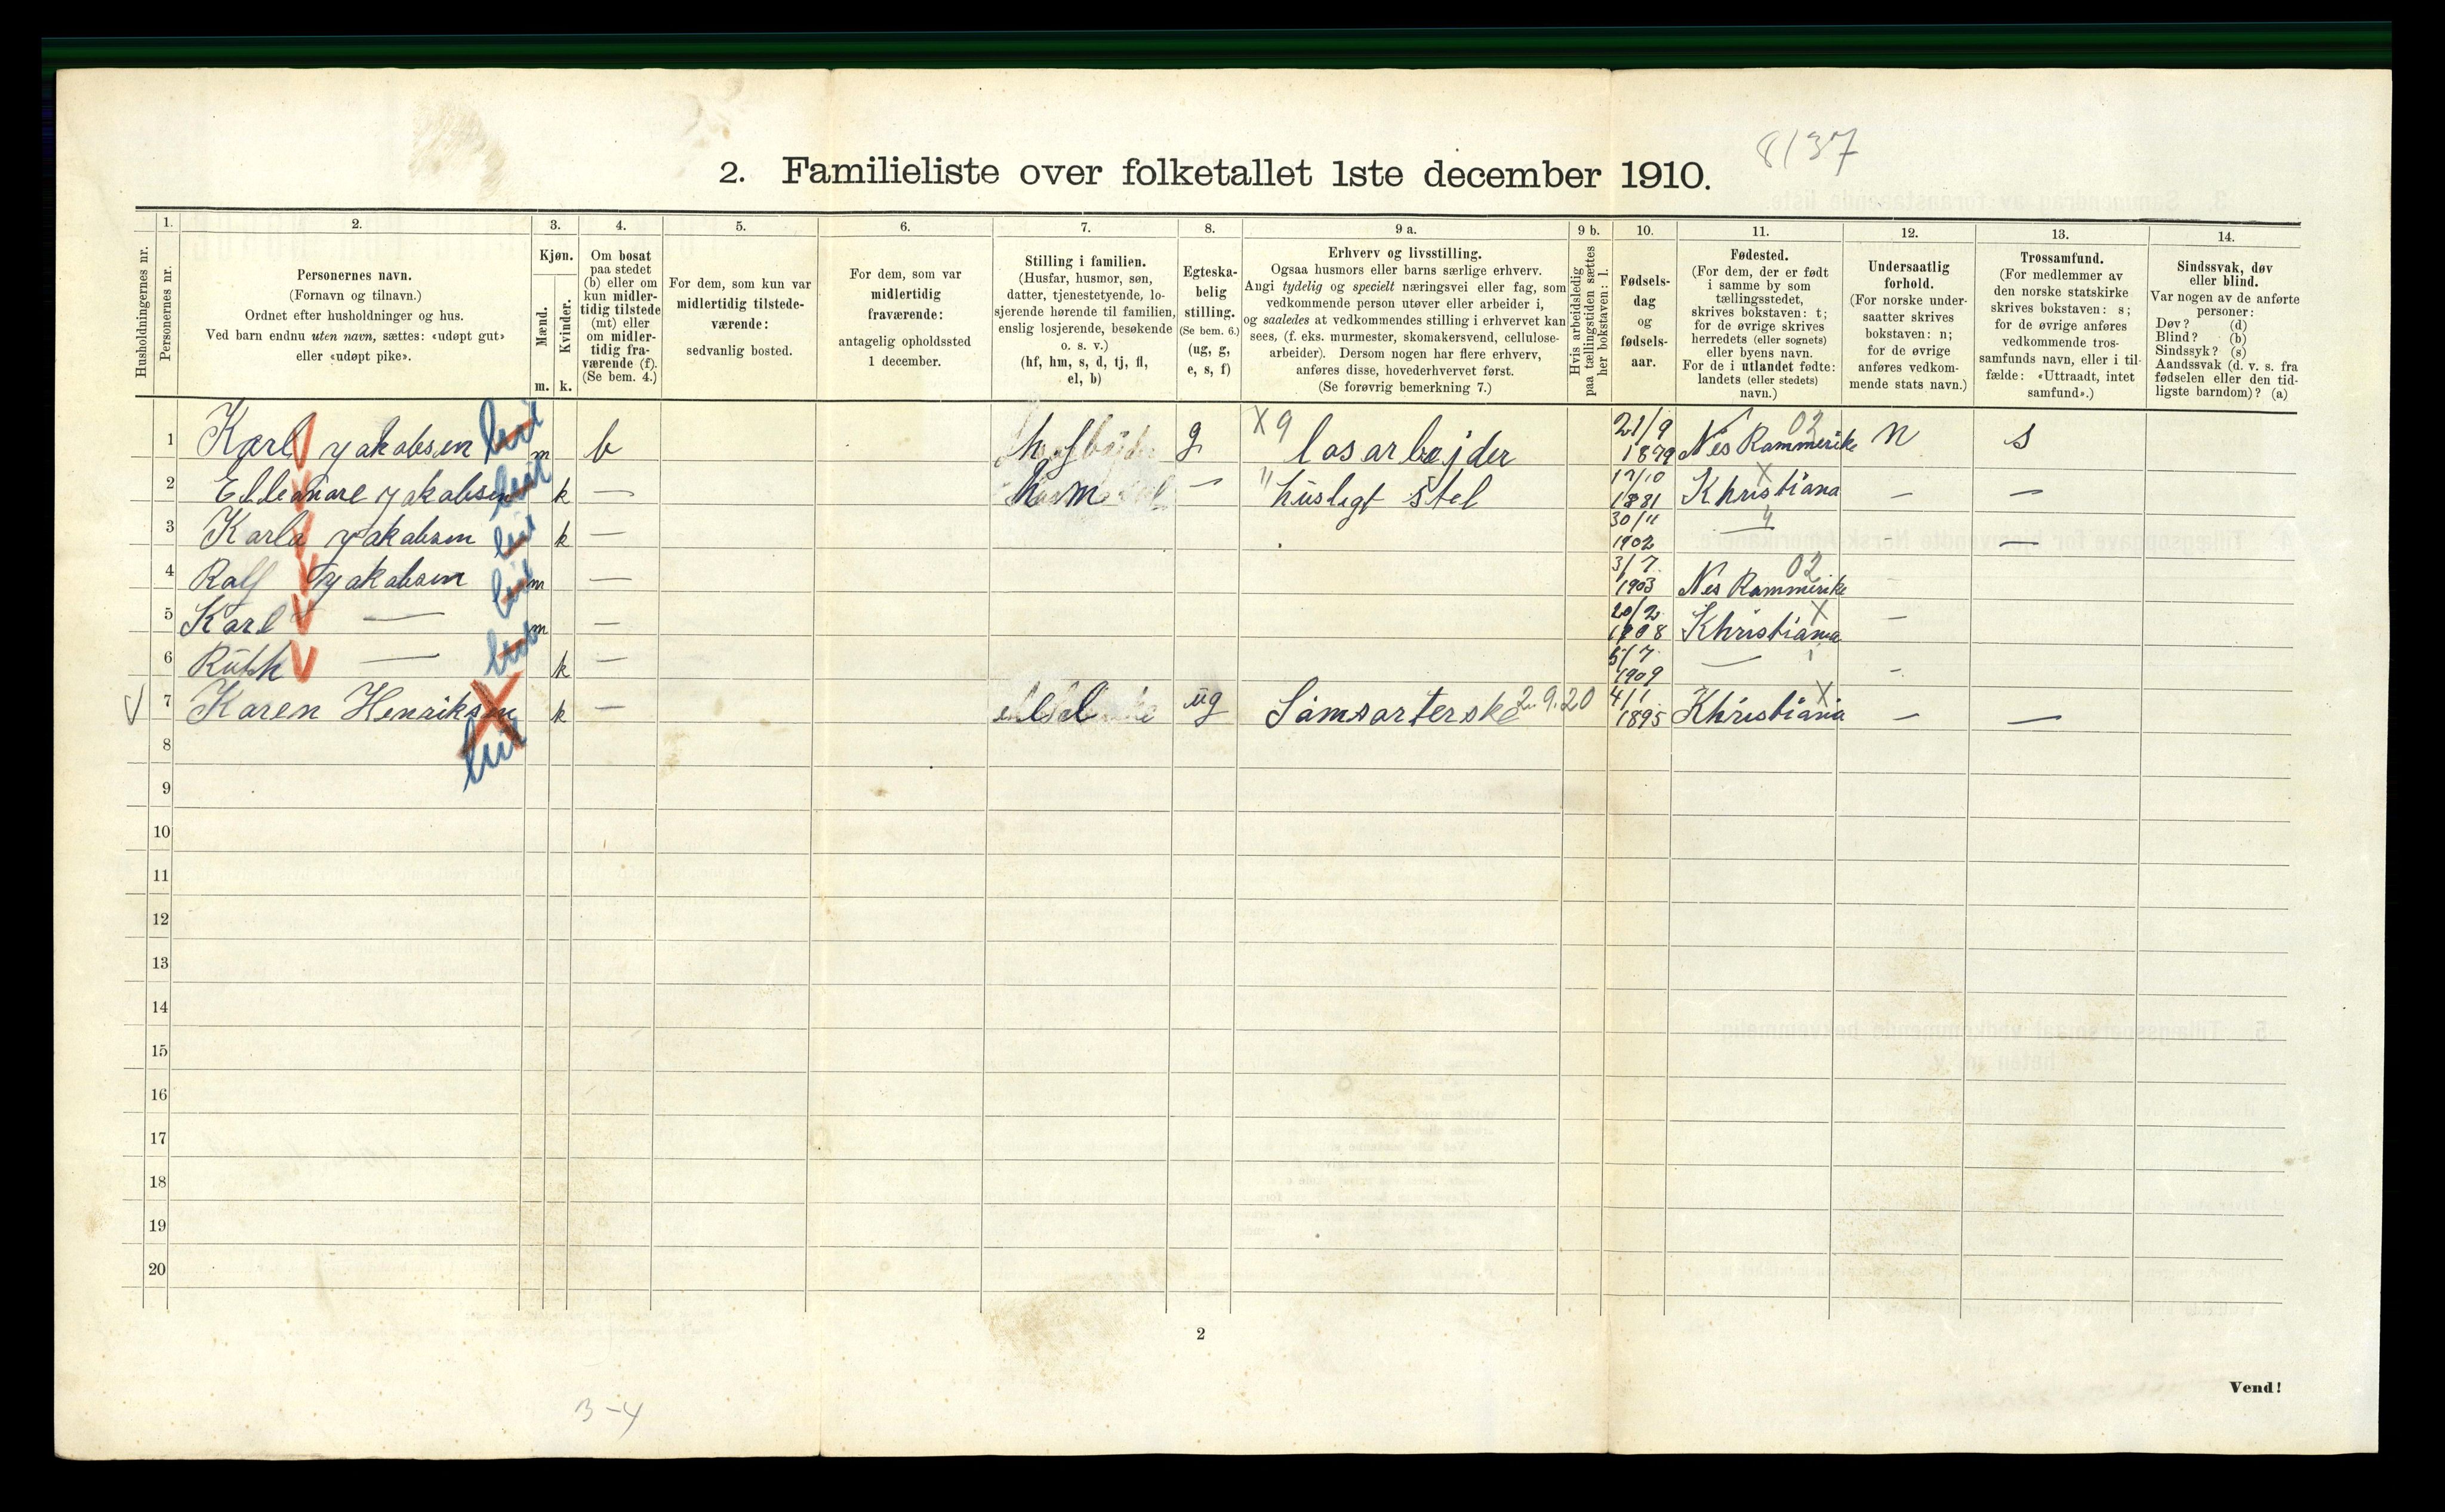 8/37
2. Familieliste over folketallet 1ste december 1910.
Husholdningernes nr.
1. Personernes nr.
2. Personernes navn.
(Fornavn og tilnavn.)
Ordnet efter husholdninger og hus.
Ved barn endnu uten navn, sættes: «udøpt gut»
eller «udøpt pike».
3. Kjøn.
Mænd. m.
Kvinder. k.
4. Om bosat
paa stedet
(b) eller om
kun midler-
tidig tilstede
(mt) eller
om midler-
tidig fra-
værende (f).
(Se bem. 4.)
5. For dem, som kun var
midlertidig tilstede-
værende:
sedvanlig bosted.
6. For dem, som var
midlertidig
fraværende:
antagelig opholdssted
1 december.
7. Stilling i familien.
(Husfar, husmor, søn,
datter, tjenestetyende, lo-
sjerende hørende til familien,
enslig losjerende, besøkende
o. s. v.)
(hf, hm, s, d, tj, fl,
el, b)
8. Egteska-
belig
stilling.
(Se bem. 6.)
(ug, g,
e, s, f)
9 a. Erhverv og livsstilling.
Ogsaa husmors eller barns særlige erhverv.
Angi tydelig og specielt næringsvei eller fag, som
vedkommende person utøver eller arbeider i,
og saaledes at vedkommendes stilling i erhvervet kan
sees, (f. eks. murmester, skomakersvend, cellulose-
arbeider). Dersom nogen har flere erhverv,
anføres disse, hovederhvervet først.
(Se forøvrig bemerkning 7.)
9 b. Hvis arbeidsledig
paa tællingstiden sættes
her bokstaven: l.
10. Fødsels-
dag
og
fødsels-
aar.
11. Fødested.
(For dem, der er født
i samme by som
tællingsstedet,
skrives bokstaven: t;
for de øvrige skrives
herredets (eller sognets)
eller byens navn.
For de i utlandet fødte:
landets (eller stedets)
navn.)
12. Undersaatlig
forhold.
(For norske under-
saatter skrives
bokstaven: n;
for de øvrige
anføres vedkom-
mende stats navn.)
13. Trossamfund.
(For medlemmer av
den norske statskirke
skrives bokstaven: s;
for de øvrige anføres
vedkommende tros-
samfunds navn, eller i til-
fælde: «Uttraadt, intet
samfund».)
14. Sindssvak, døv
eller blind.
Var nogen av de anførte
personer:
Døv? (d)
Blind? (b)
Sindssyk? (s)
Aandssvak (d. v. s. fra
fødselen eller den tid-
ligste barndom)? (a)
1 Karl Jakobsen m b hf g X9 losarbejder 21/9 1879 Nes Rommerike 02 n s
2 Elleonore Jakobsen k — hm — " husligt stel 17/10 1881 Khristiana X — —
3 Karla Jakobsen k — 30/11 1902 — 4 - —
4 Ralf Jakobsen m — 3/7 1903 Nes Rommerike 02 -
5 Karl — m — 20/2 1908 Khristiania X —
6 Ruth — k — 5/7 1909 — -
7 Karen Henriksen k — el ug Sämsarterske 2.9.20 4/1 1895 Khristiania X — —
8
9
10
11
12
13
14
15
16
17
18
19
20
2
Vend!
3-4